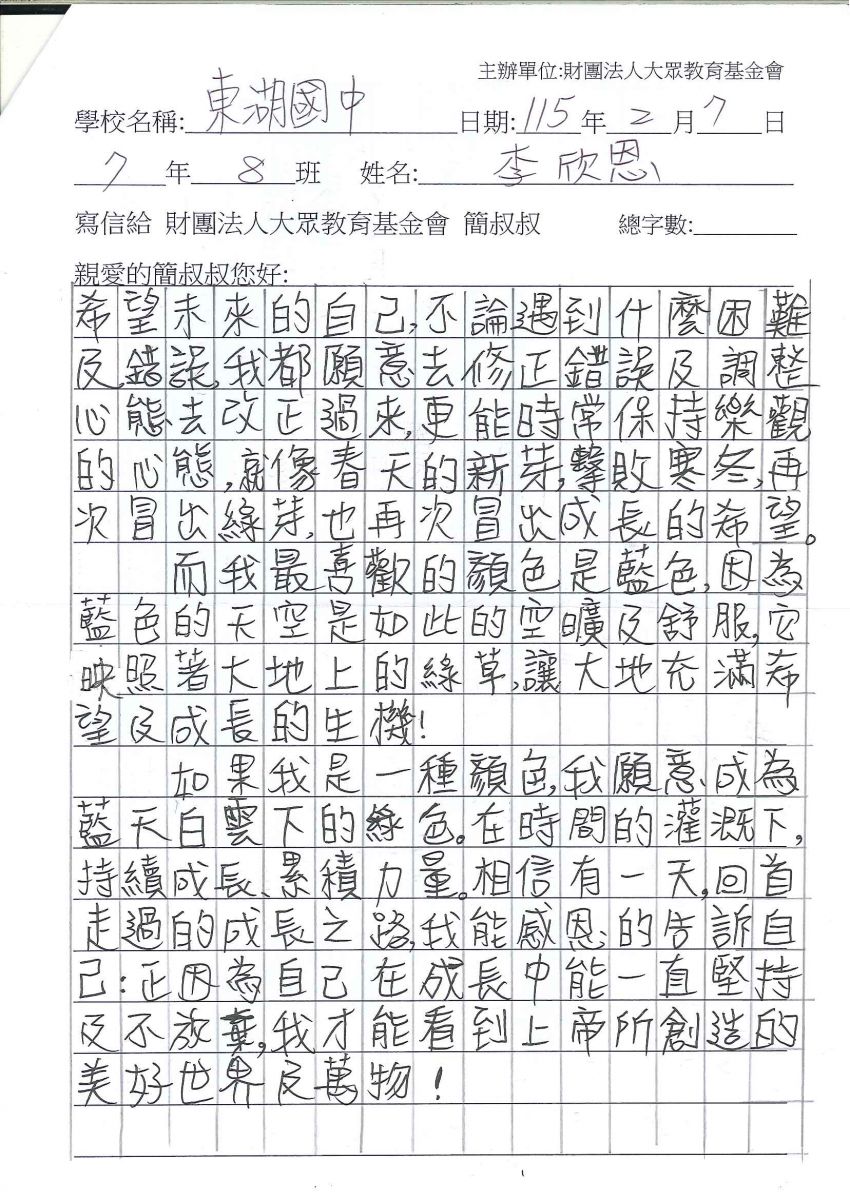 主辦單位:財團法人大眾教育基金會
學校名稱:東湖國中 日期:115年2月7日
7年8班 姓名:李欣恩
寫信給 財團法人大眾教育基金會 簡叔叔 總字數:
親愛的簡叔叔您好:
希望未來的自己,不論遇到什麼困難
及錯誤,我都願意去修正錯誤及調整
心態去改正過來,更能時常保持樂觀
的心態,就像春天的新芽,擊敗寒冬,再
次冒出綠芽,也再次冒出成長的希望。
而我最喜歡的顏色是藍色,因為
藍色的天空是如此的空曠及舒服,它
映照著大地上的綠草,讓大地充滿希
望及成長的生機!
如果我是一種顏色,我願意成為
藍天白雲下的綠色。在時間的灌溉下,
持續成長、累積力量。相信有一天,回首
走過的成長之路,我能感恩的告訴自
己:正因為自己在成長中能一直堅持
及不放棄,我才能看到上帝所創造的
美好世界及萬物!